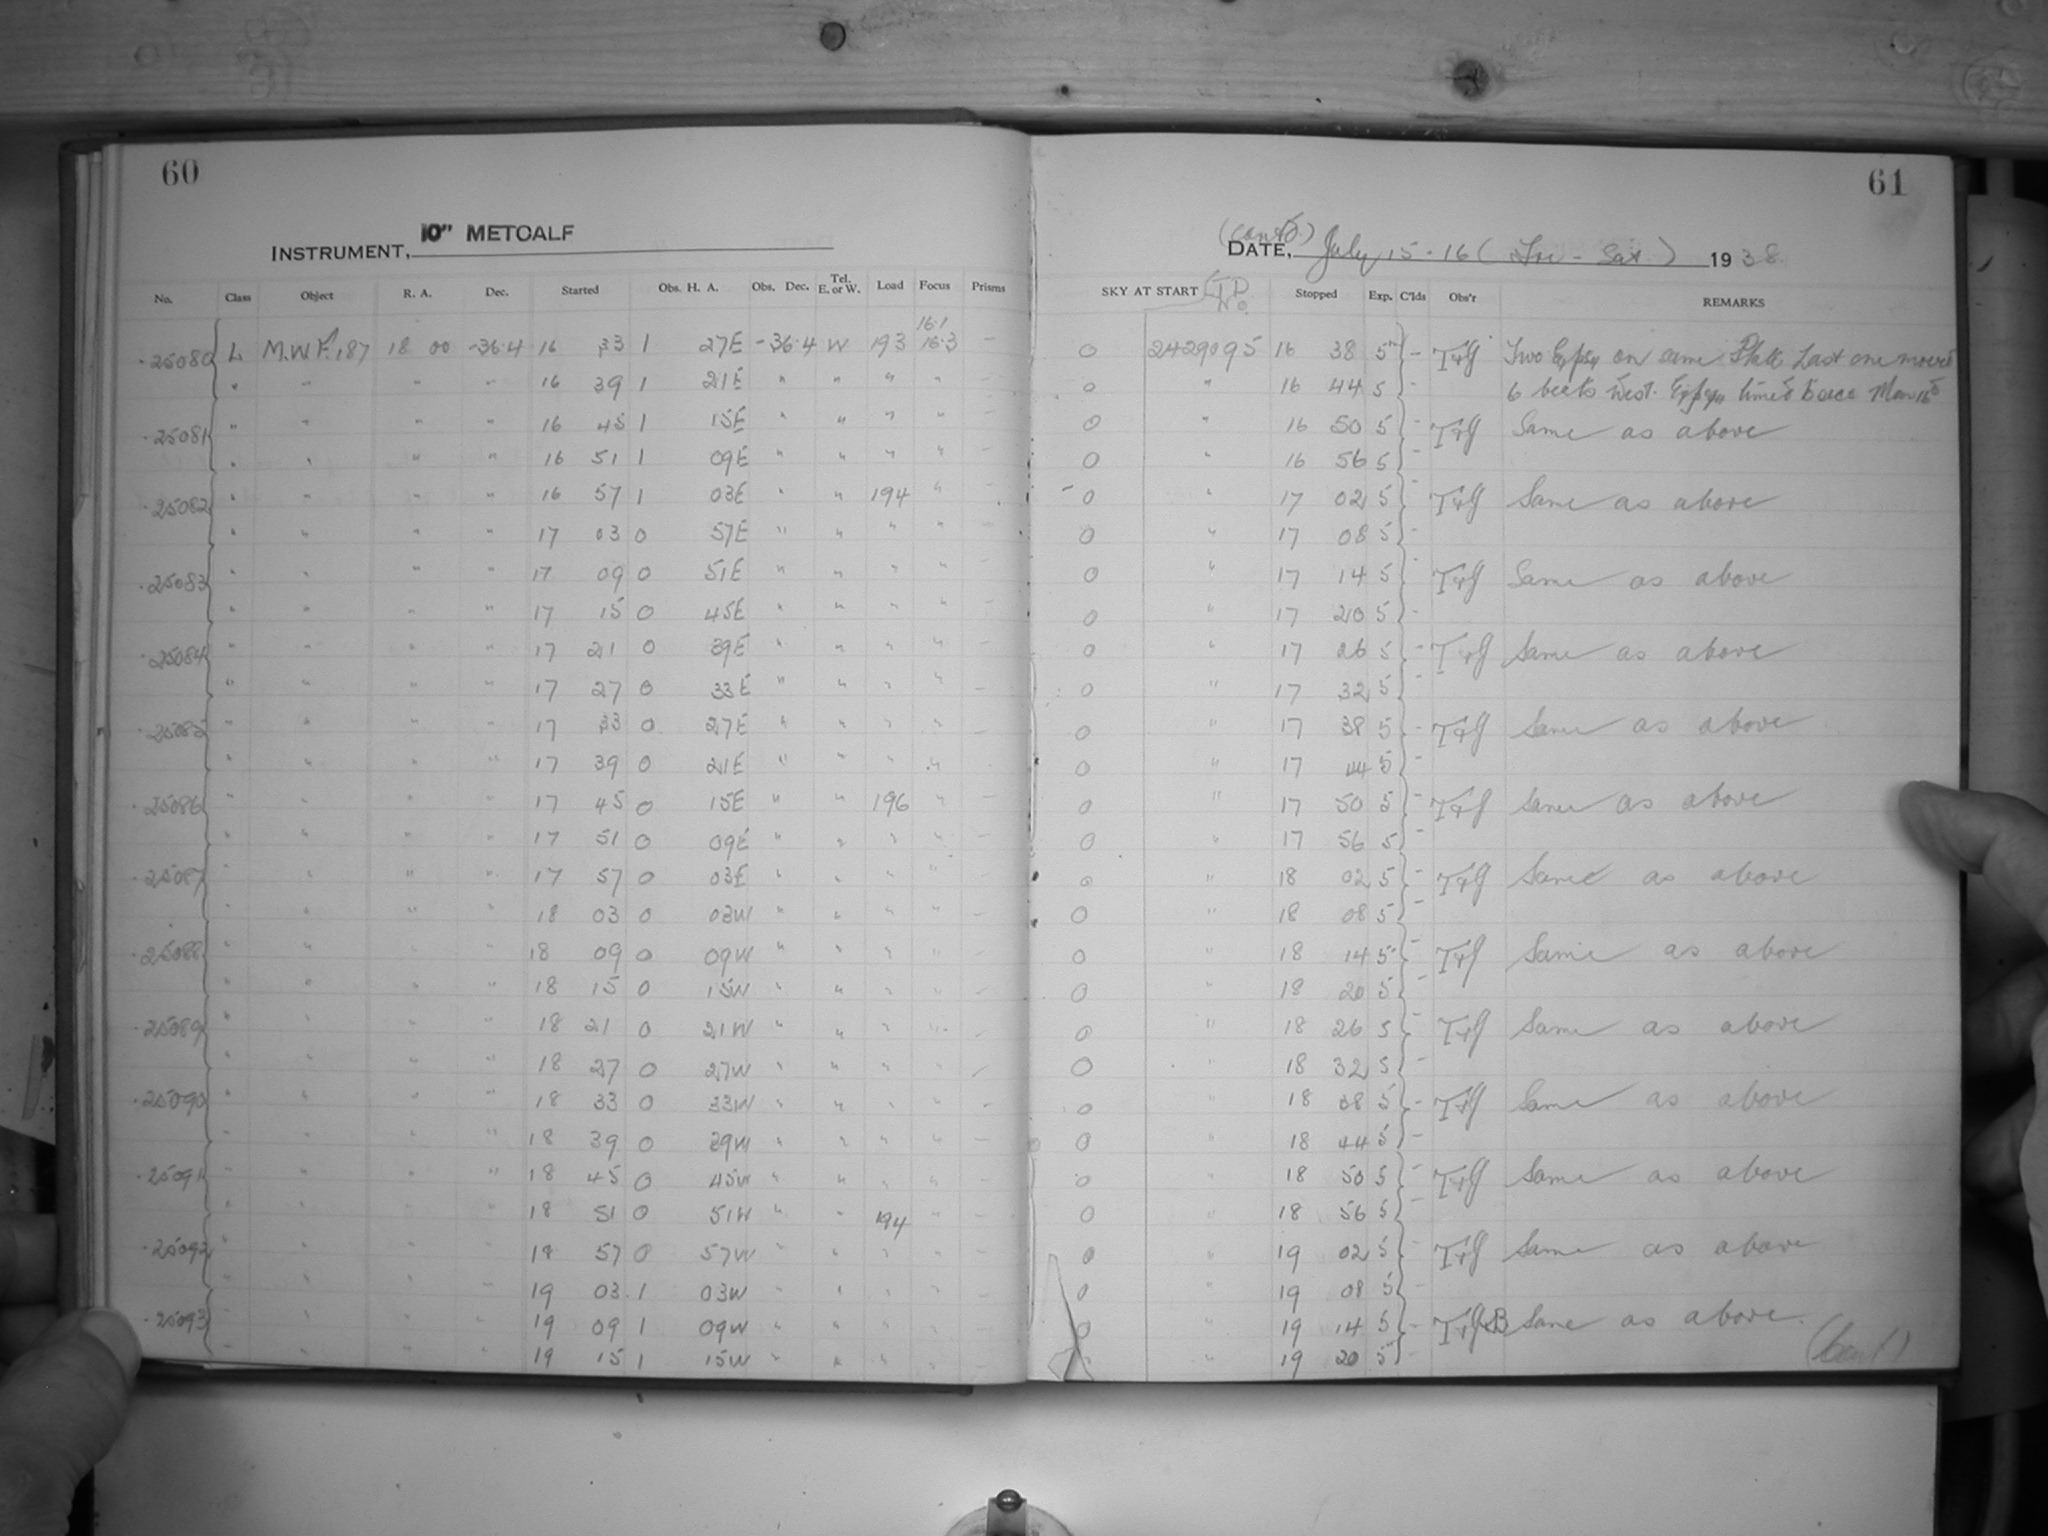 60
61
INSTRUMENT, 10" METCALF
(contd.)
DATE, July 15-16 (Fri - Sat) 1938
No. Class Object R. A. Dec. Started Obs. H. A. Obs. Dec. Tel. E. or W. Load Focus Prisms SKY AT START J.D. No. Stopped Exp. C'lds Obs'r REMARKS
16.1
25080 L M.W.F. 187 18 00 -36.4 16 33 1 27E -36.4 W 193 16.3 — 0 2429095 16 38 5m - Two Exps on same Plate Last one moved
" " " " 16 39 1 21E " " " " - 0 " 16 44 5 - 6 West.
25081 " " " " 16 45 1 15E " " " " 0 " 16 50 5 - Same as above
" " " " 16 51 1 09E " " " " 0 " 16 56 5 -
25082 " " " " 16 57 1 03E " " 194 " - 0 " 17 02 5 - Same as above
" " " " 17 03 0 57E " " " " 0 " 17 08 5 -
25083 " " " " 17 09 0 51E " " " " 0 " 17 14 5 - Same as above
" " " " 17 15 0 45E " " " " 0 " 17 20 5 -
25084 " " " " 17 21 0 39E " " " " - 0 " 17 26 5 - Same as above
" " " " 17 27 0 33E " " " " - 0 " 17 32 5 -
25085 " " " " 17 33 0 27E " " " " - 0 " 17 38 5 - Same as above
" " " " 17 39 0 21E " " " " 0 " 17 44 5
25086 " " " " 17 45 0 15E " " 196 " - 0 " 17 50 5 - Same as above
" " " " 17 51 0 09E " " " " - 0 " 17 56 5 -
25087 " " " " 17 57 0 03E " " " " - 0 " 18 02 5 - Same as above
" " " " 18 03 0 03W " " " " - 0 " 18 08 5 -
25088 " " " " 18 09 0 09W " " " " - 0 " 18 14 5 - Same as above
" " " " 18 15 0 15W " " " " - 0 " 18 20 5 -
25089 " " " " 18 21 0 21W " " " " - 0 " 18 26 5 - Same as above
" " " " 18 27 0 27W " " " " - 0 " 18 32 5 -
25090 " " " " 18 33 0 33W " " " " - 0 " 18 38 5 - Same as above
" " " " 18 39 0 39W " " " " - 0 " 18 44 5 -
25091 " " " " 18 45 0 45W " " " " - 0 " 18 50 5 - Same as above
" " " " 18 51 0 51W " " 194 " - 0 " 18 56 5 -
25092 " " " " 18 57 0 57W " " " " - 0 " 19 02 5 - Same as above
" " " " 19 03 1 03W " " " " - 0 " 19 08 5 -
25093 " " " " 19 09 1 09W " " " " - 0 " 19 14 5 - Same as above.
" " " " 19 15 1 15W " " " " - " 19 20 5 -
(Cont)